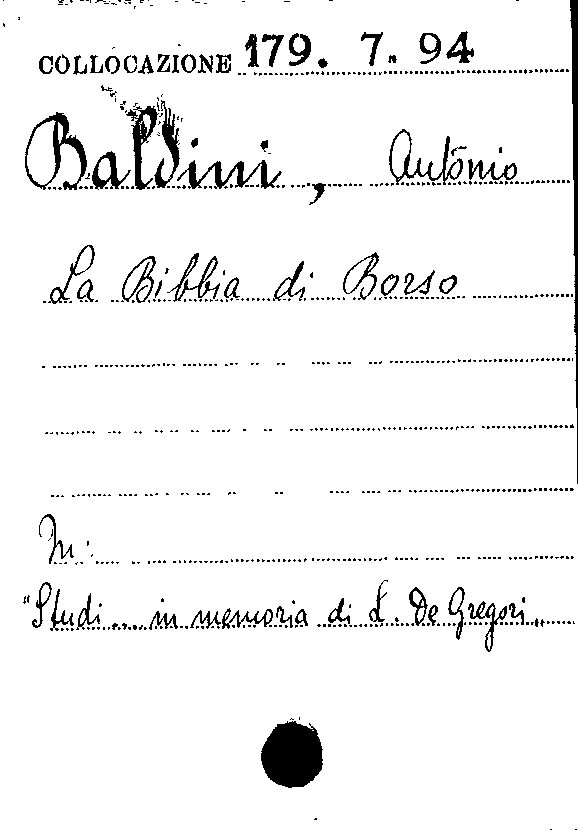 COLLOCAZIONE 179. 7. 94
Baldini, Antonio
La Bibbia di Borso
In:
"Studi .... in memoria di L. De Gregori"